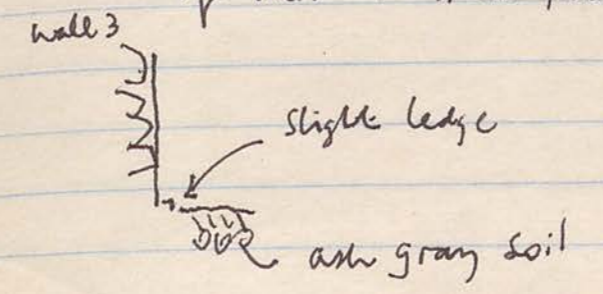 wall 3
slight ledge
ash gray soil